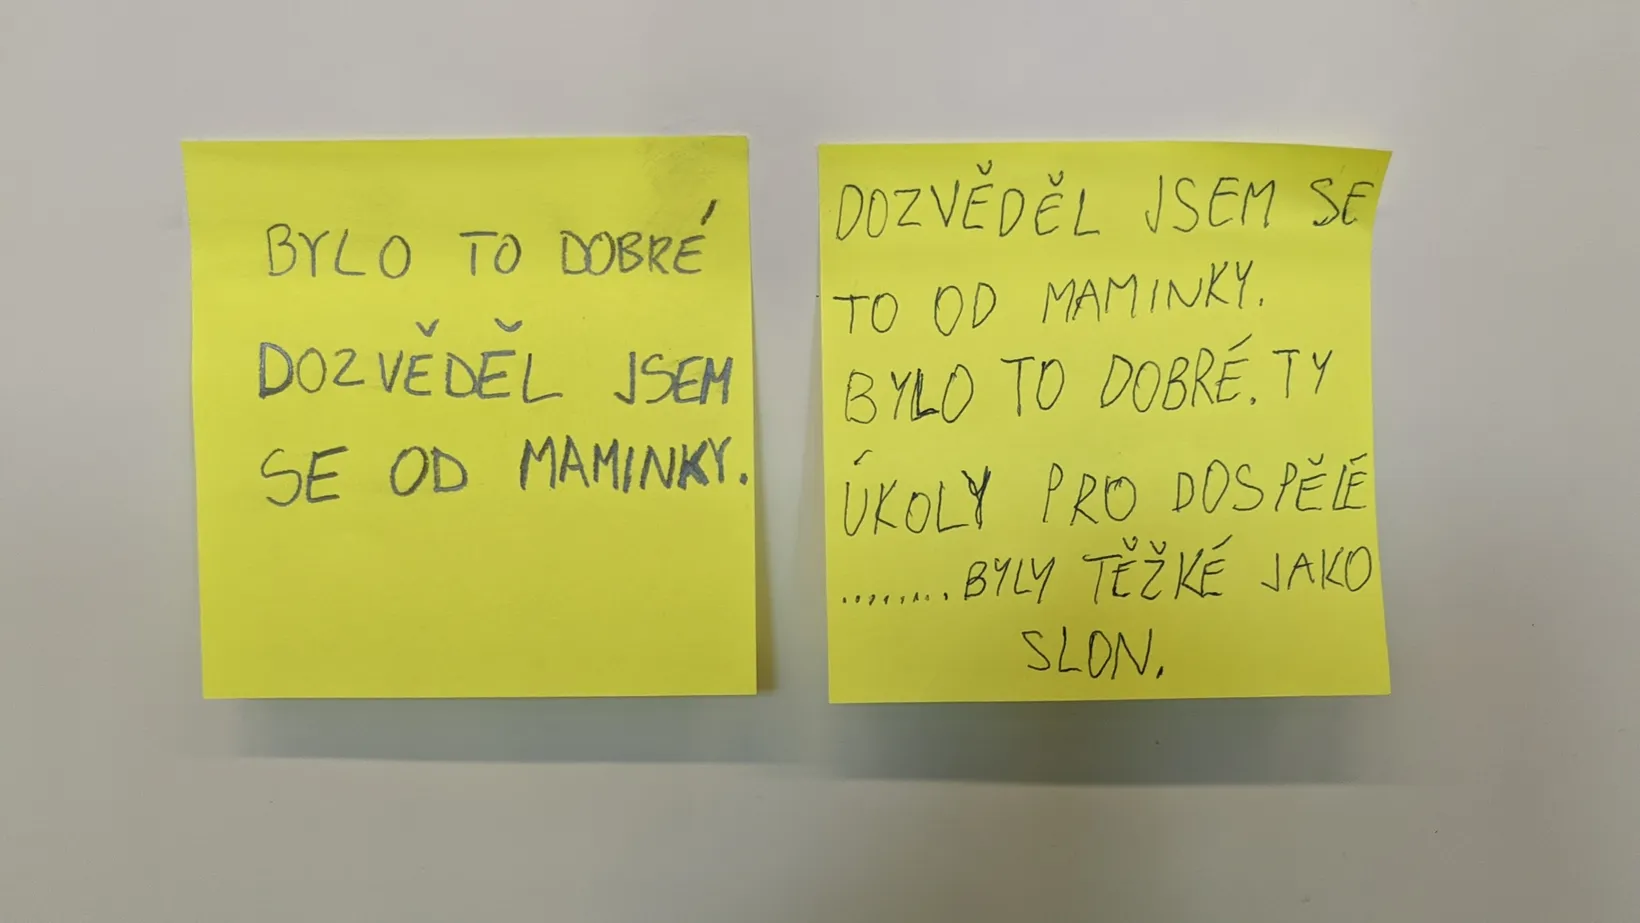 BYLO TO DOBRÉ
DOZVĚDĚL JSEM
SE OD MAMINKY.
DOZVĚDĚL JSEM SE
TO OD MAMINKY.
BYLO TO DOBRÉ. TY
ÚKOLY PRO DOSPĚLÉ
........BYLY TĚŽKÉ JAKO
SLON.